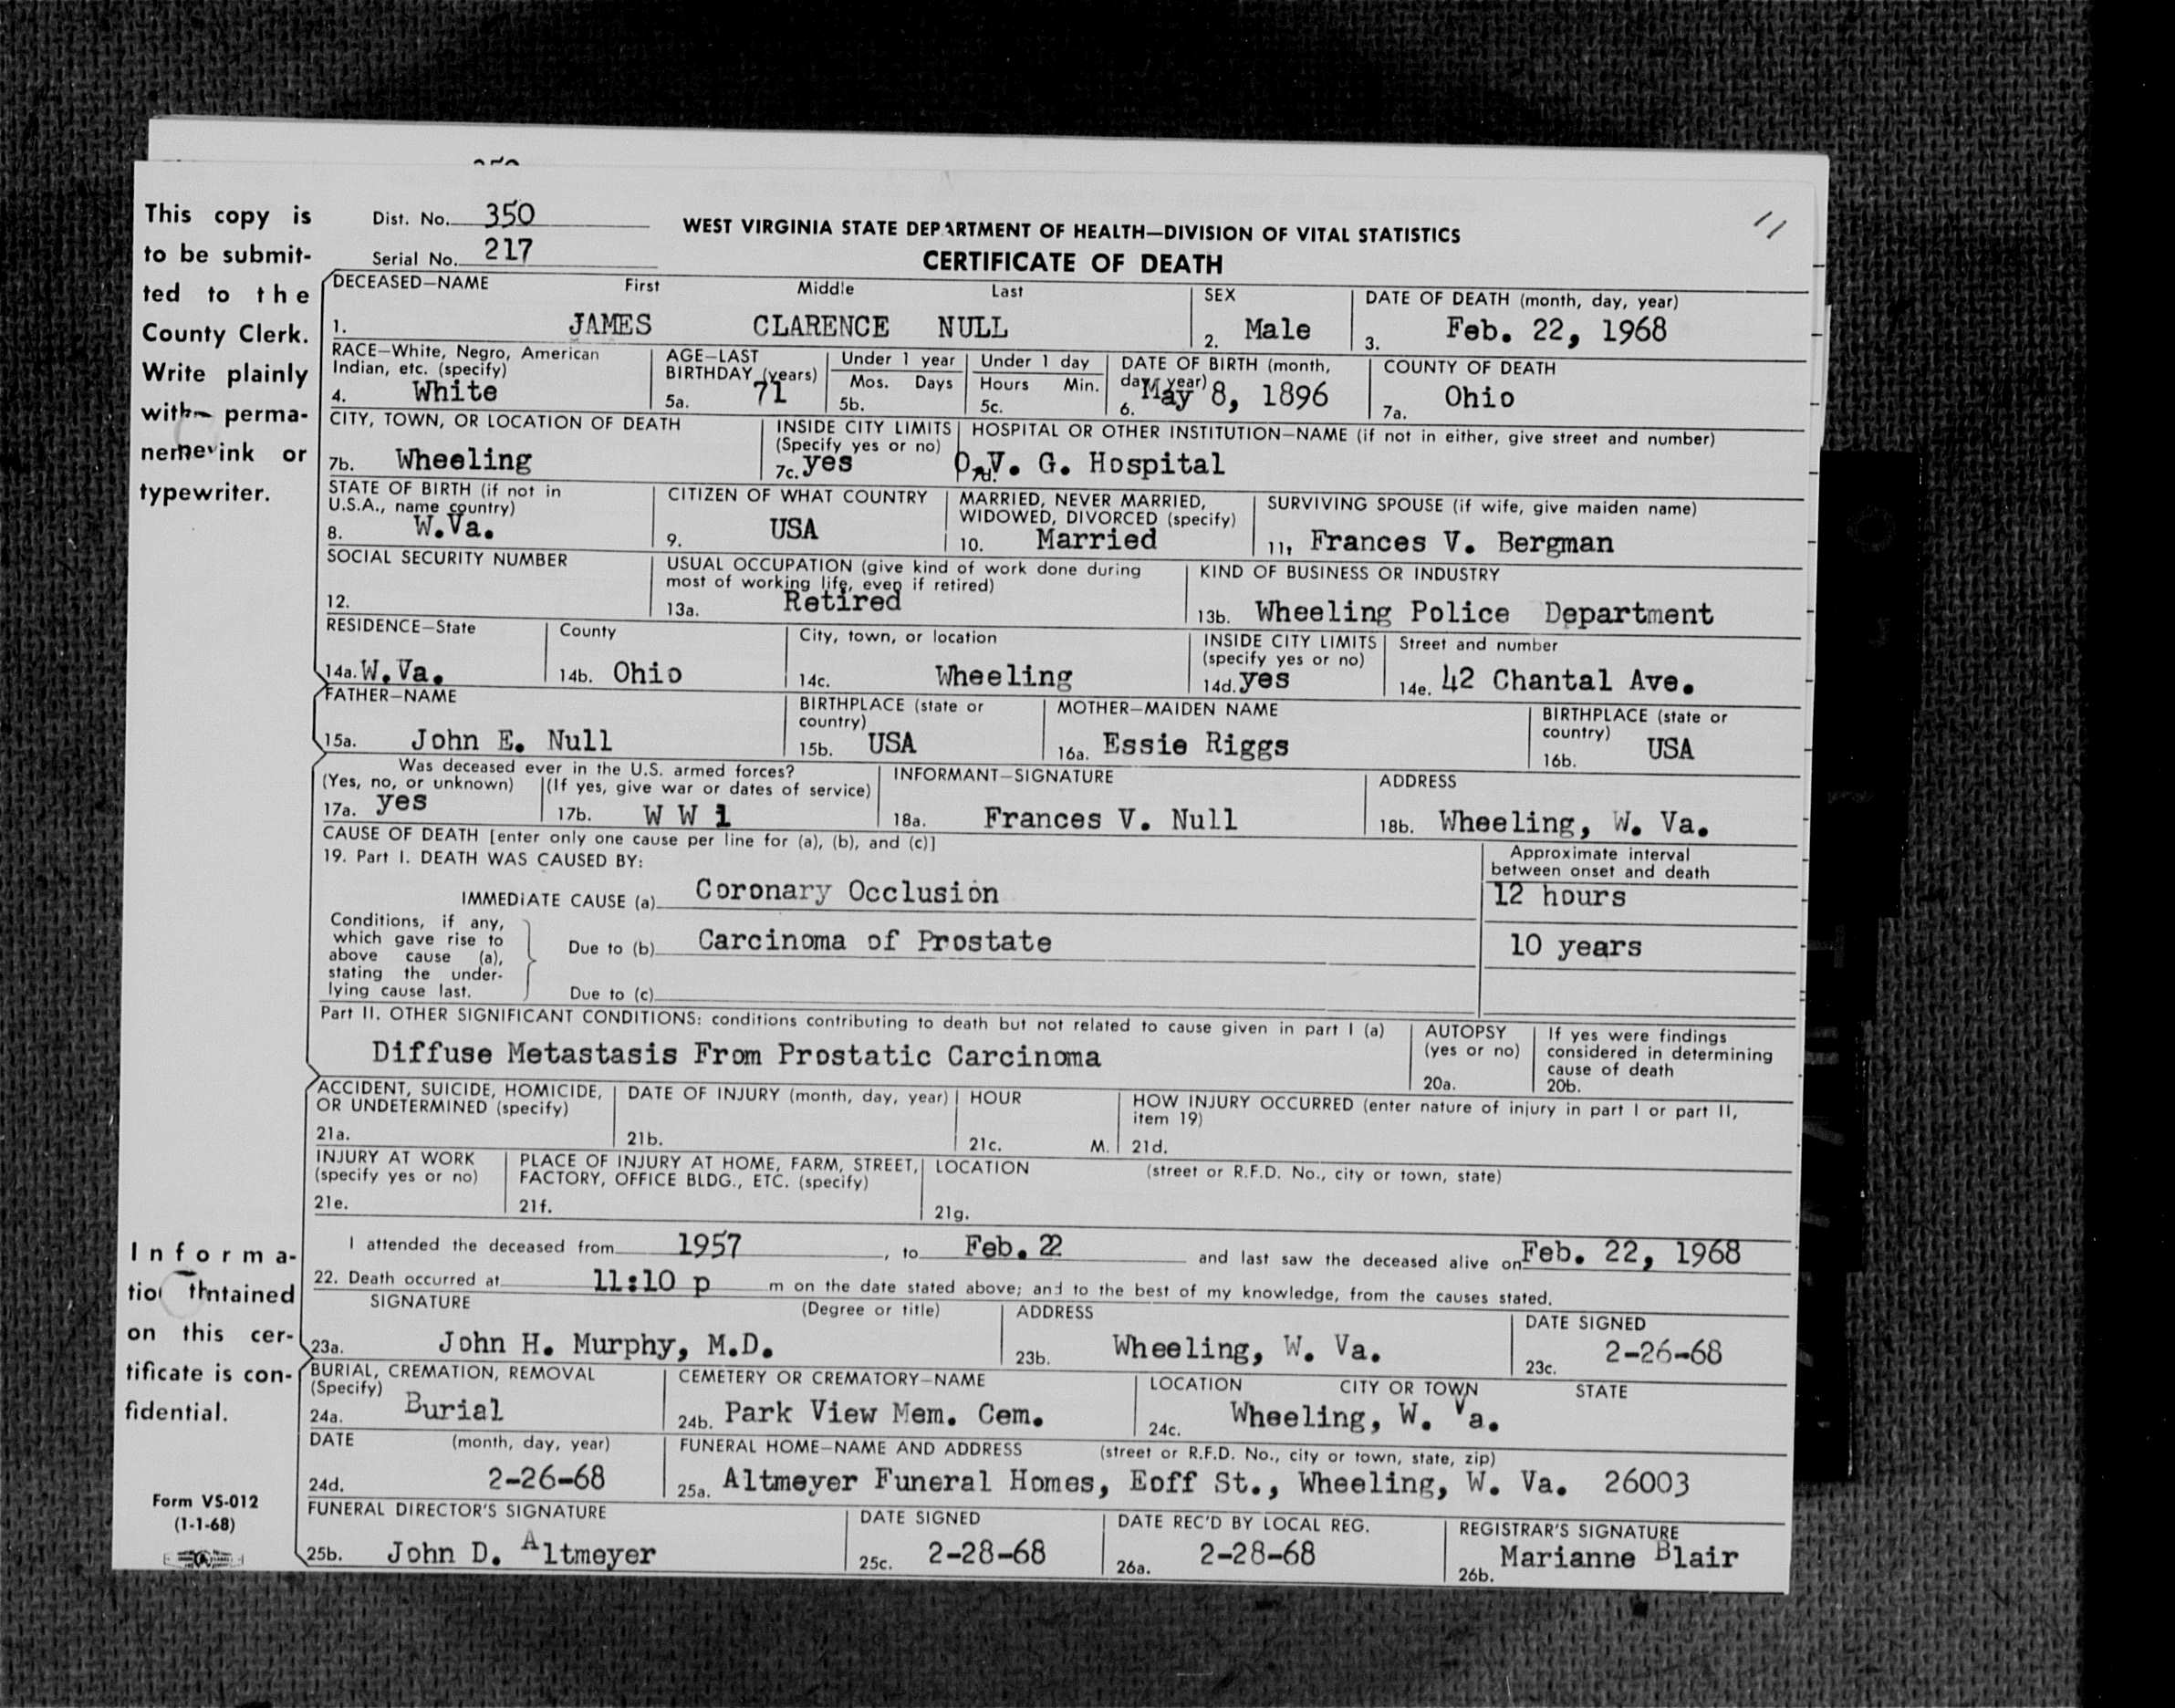 This copy is to be submitted to the County Clerk. Write plainly with perma- ink or typewriter.
Dist. No. 350
Serial No. 217
WEST VIRGINIA STATE DEPARTMENT OF HEALTH—DIVISION OF VITAL STATISTICS
CERTIFICATE OF DEATH
11
DECEASED—NAME First Middle Last
1. JAMES CLARENCE NULL
SEX
2. Male
DATE OF DEATH (month, day, year)
3. Feb. 22, 1968
RACE—White, Negro, American Indian, etc. (specify)
4. White
AGE—LAST BIRTHDAY (years)
5a. 71
Under 1 year
Mos. Days
5b.
Under 1 day
Hours Min.
5c.
DATE OF BIRTH (month, day, year)
6. May 8, 1896
COUNTY OF DEATH
7a. Ohio
CITY, TOWN, OR LOCATION OF DEATH
7b. Wheeling
INSIDE CITY LIMITS (Specify yes or no)
7c. yes
HOSPITAL OR OTHER INSTITUTION—NAME (if not in either, give street and number)
7d. O.V. G. Hospital
STATE OF BIRTH (if not in U.S.A., name country)
8. W.Va.
CITIZEN OF WHAT COUNTRY
9. USA
MARRIED, NEVER MARRIED, WIDOWED, DIVORCED (specify)
10. Married
SURVIVING SPOUSE (if wife, give maiden name)
11, Frances V. Bergman
SOCIAL SECURITY NUMBER
12.
USUAL OCCUPATION (give kind of work done during most of working life, even if retired)
13a. Retired
KIND OF BUSINESS OR INDUSTRY
13b. Wheeling Police Department
RESIDENCE—State
14a. W.Va.
County
14b. Ohio
City, town, or location
14c. Wheeling
INSIDE CITY LIMITS (specify yes or no)
14d. yes
Street and number
14e. 42 Chantal Ave.
FATHER—NAME
15a. John E. Null
BIRTHPLACE (state or country)
15b. USA
MOTHER—MAIDEN NAME
16a. Essie Riggs
BIRTHPLACE (state or country)
16b. USA
Was deceased ever in the U.S. armed forces?
(Yes, no, or unknown) (If yes, give war or dates of service)
17a. yes 17b. W W 1
INFORMANT—SIGNATURE
18a. Frances V. Null
ADDRESS
18b. Wheeling, W. Va.
CAUSE OF DEATH [enter only one cause per line for (a), (b), and (c)]
19. Part I. DEATH WAS CAUSED BY:
Approximate interval between onset and death
IMMEDIATE CAUSE (a) Coronary Occlusion 12 hours
Conditions, if any, which gave rise to above cause (a), stating the underlying cause last.
Due to (b) Carcinoma of Prostate 10 years
Due to (c)
Part II. OTHER SIGNIFICANT CONDITIONS: conditions contributing to death but not related to cause given in part I (a)
Diffuse Metastasis From Prostatic Carcinoma
AUTOPSY (yes or no)
20a.
If yes were findings considered in determining cause of death
20b.
ACCIDENT, SUICIDE, HOMICIDE, OR UNDETERMINED (specify)
21a.
DATE OF INJURY (month, day, year)
21b.
HOUR
21c. M.
HOW INJURY OCCURRED (enter nature of injury in part I or part II, item 19)
21d.
INJURY AT WORK (specify yes or no)
21e.
PLACE OF INJURY AT HOME, FARM, STREET, FACTORY, OFFICE BLDG., ETC. (specify)
21f.
LOCATION (street or R.F.D. No., city or town, state)
21g.
I attended the deceased from 1957, to Feb. 22 and last saw the deceased alive on Feb. 22, 1968
22. Death occurred at 11:10 p m on the date stated above; and to the best of my knowledge, from the causes stated.
SIGNATURE (Degree or title)
23a. John H. Murphy, M.D.
ADDRESS
23b. Wheeling, W. Va.
DATE SIGNED
23c. 2-26-68
BURIAL, CREMATION, REMOVAL (Specify)
24a. Burial
CEMETERY OR CREMATORY—NAME
24b. Park View Mem. Cem.
LOCATION CITY OR TOWN STATE
24c. Wheeling, W. Va.
DATE (month, day, year)
24d. 2-26-68
FUNERAL HOME—NAME AND ADDRESS (street or R.F.D. No., city or town, state, zip)
25a. Altmeyer Funeral Homes, Eoff St., Wheeling, W. Va. 26003
FUNERAL DIRECTOR'S SIGNATURE
25b. John D. Altmeyer
DATE SIGNED
25c. 2-28-68
DATE REC'D BY LOCAL REG.
26a. 2-28-68
REGISTRAR'S SIGNATURE
26b. Marianne Blair
Informa- on this certificate is confidential.
Form VS-012
(1-1-68)